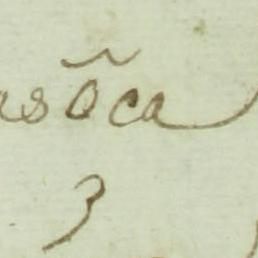 asõca
3